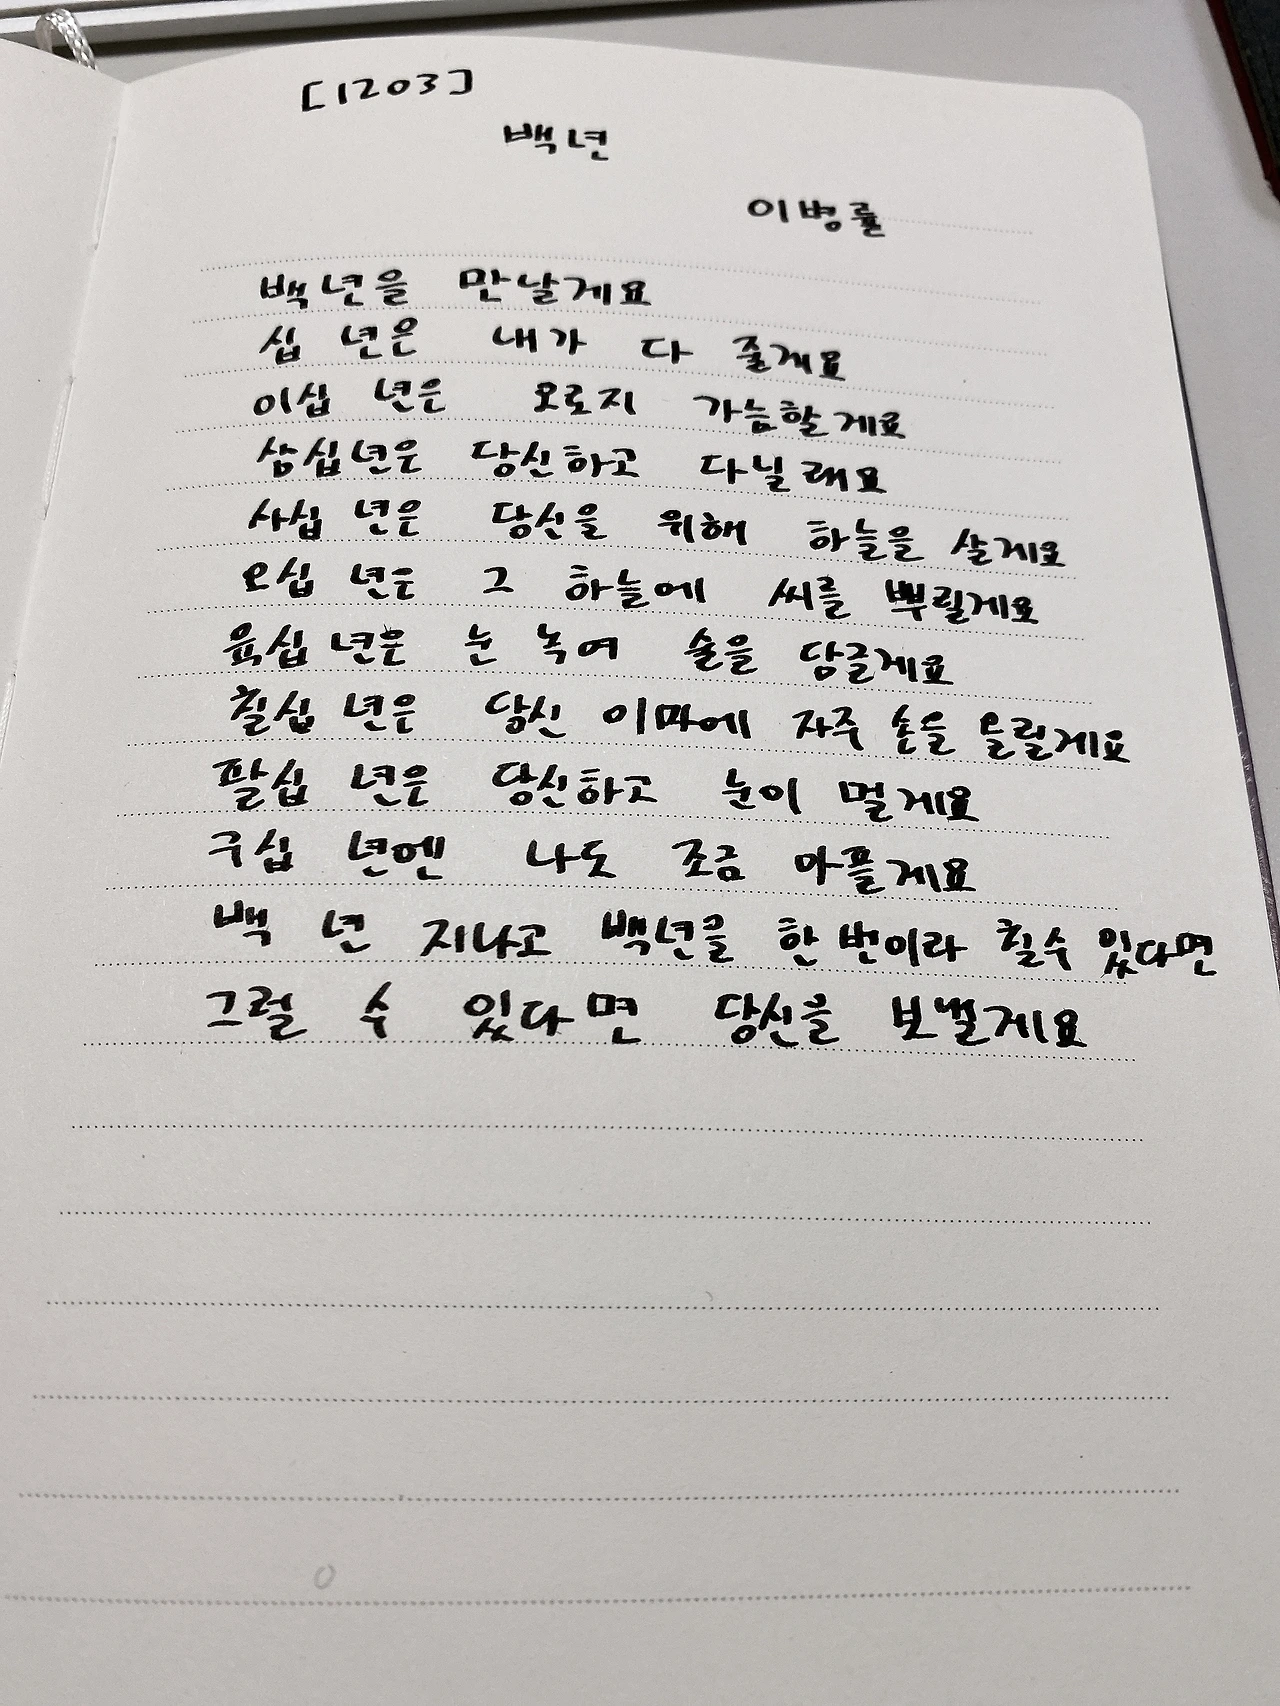 [1203]
백년
이병률
백년을 만날게요
십 년은 내가 다 줄게요
이십 년은 오로지 가늠할게요
삼십년은 당신하고 다닐래요
사십 년은 당신을 위해 하늘을 살게요
오십 년은 그 하늘에 씨를 뿌릴게요
육십 년은 눈 녹여 술을 담글게요
칠십 년은 당신 이마에 자주 손을 올릴게요
팔십 년은 당신하고 눈이 멀게요
구십 년엔 나도 조금 아플게요
백 년 지나고 백년을 한 번이라 칠수 있다면
그럴 수 있다면 당신을 보낼게요